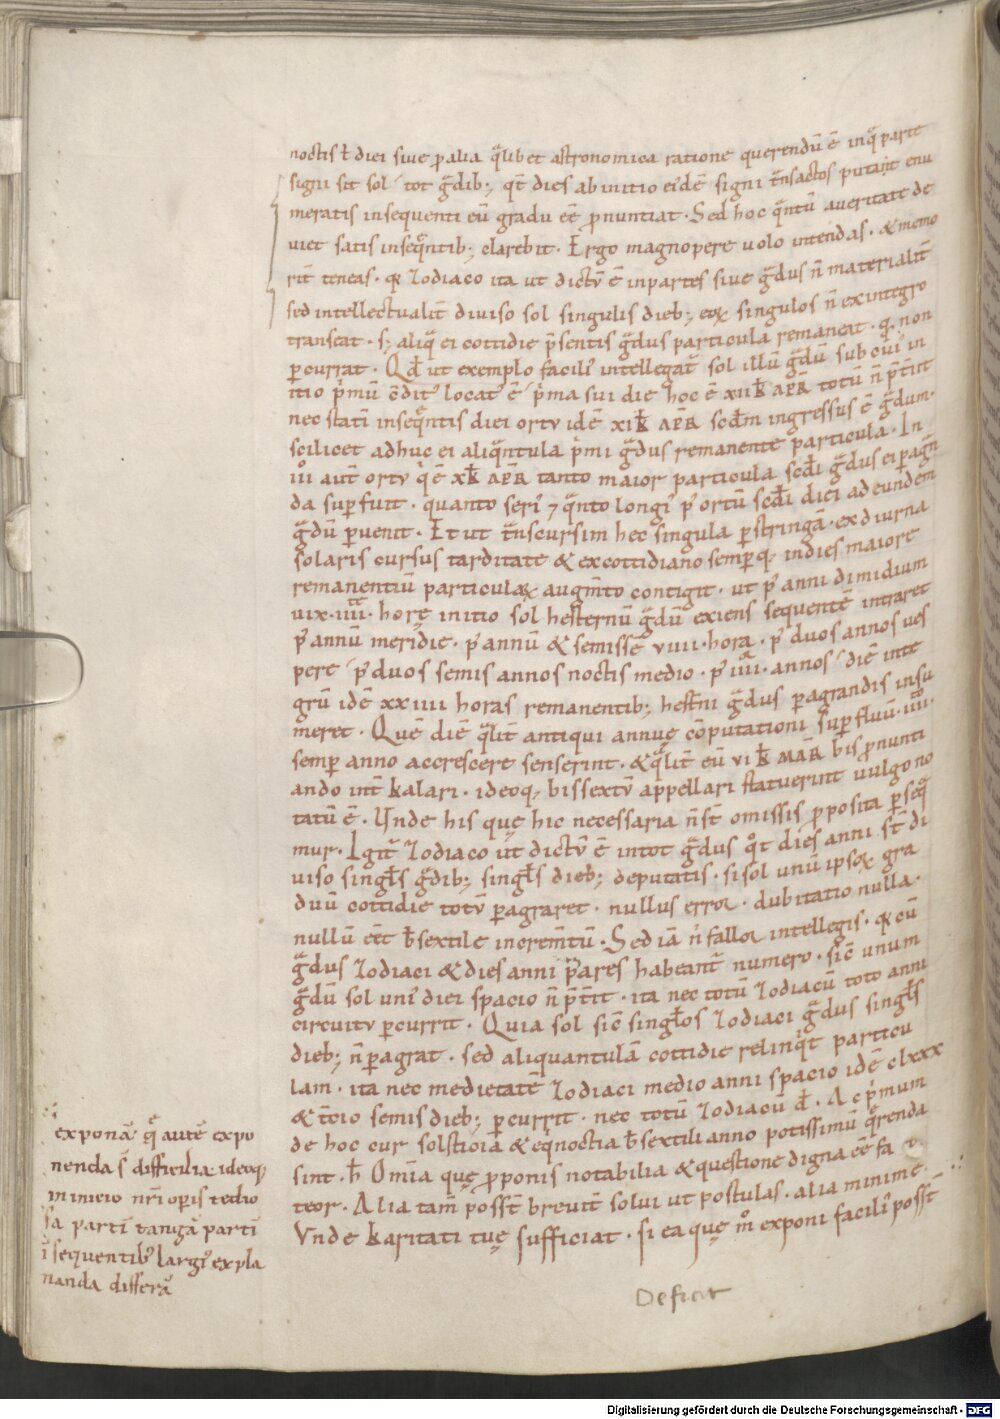 noctis ł diei siue ꝑ alia q̃libet astronomica ratione querendū ē inq̃ parte
signi sit sol tot g̃dib; q̄t dies ab initio ei'dē signi t̃nsactos putauit enu
meratis insequenti eū gradu eē ꝓnuntiat. Sed hoc q̃ntū aueritate de
uiet satis inseq̃ntib; clarebit. Ergo magnopere uolo intendas. & memo
rit̄ teneas. qꝛ zodiaco ita ut dictū ē inpartes siue g̃dus n̄ materialit̄
sed intellectualit̄ diuiso sol singulis dieb; eoꝝ singulos n̄ exintegro
transeat. s; aliq̃ ei cottidie p̄sentis g̃dus particula remaneat. non
ꝑcurrat. Qđ ut exemplo facili' intellegat̄ sol illū g̃dū sub in
itio p'mū locat' ē p'ma sui die hoc ē xıı k̄ APR totū n̄ p̄t̄iit
nec statī inseq̃ntis diei ortu idē xı k̄ APR scđm ingressus ē g̃dum.
scilicet adhuc ei aliq̃ntula p'mi g̃dus remanente particula. In
iıı aut̄ ortu q' ē x k̄ APR tanto maior particula scđi g̃dus ei ꝑagrā
da suꝑfuit. quanto seri' ⁊ q̃nto longi' p' ortū scđi diei ad eundem
g̃dū ꝑuenit. Et ut t̃nscursim hec singula ꝑstringā. ex diurna
solaris cursus tarditate & excottidiano semꝑq; indies maiore
remanentiū particulaꝝ augm̄to contigit. ut p' anni dimidium
uix. ıııı. horę initio sol hesternū g̃dū exiens sequentē intraret
p' annū meridie. p' annū & semissē vıııı. hora. p' duos annos ues
pere p' duos semis annos noctis medio. p' ıııı. annos diē inte
grū idē xxıııı horas remanentib; hest̄ni g̃dus ꝑagrandis insu
meret. Quē diē q̃lit̄ antiqui annuę cōputationi suꝑfluū. ıııı.
semꝑ anno accrescere senserint. & q̃lit̄ eū vı k̄ MAR bis ꝓnunti
ando int̄ kalari. ideoq; bissextū appellari statuerint uulgo no
tatū ē. Unde his quę hic necessaria n̄ st̄ omissis ꝓposita ꝑseq̃
mur. Igit̄ zodiaco ut̄ dictū ē intot g̃dus q̊t dies anni st̄ di
uiso singłs g̃dib; singłs dieb; deputatis. si sol unū ipsoꝝ gra
duū cottidie totū ꝑagraret. nullus error. dubitatio nulla.
nullū eēt b̄sextile increm̄tū. Sed iā n' fallor intellegis. qꝛ cū
g̃dus zodiaci & dies anni pares habeant̄ numero. sic̄ unum
g̃dū sol uni' diei spacio n̄ p̄t̄it. ita nec totū zodiacū toto anni
circuitu ꝑcurrit. Quia sol sic̄ singłos zodiaci g̃dus singłs
dieb; n̄ ꝑagrat. sed aliquantulā cottidie relinq't particu
lam. ita nec medietatē zodiaci medio anni spacio idē clxxx
& t̄cio semis dieb; ꝑcurrit. nec totū zodiacū đ. Ac p'mum
de hoc cur solsticia & eq̃noctia b̄sextili anno potissimū q̃renda
sint. h̄ Om̄ia quę ꝓponis notabilia & questione digna eē fa
teor. Alia tam̄ possт̄ breuit̄ solui ut postulas. alia minime.
Vnde karitati tuę sufficiat. si ea quę m° exponi facili' possт̄
exponā. q̃ autē expo
nenda s̄ difficilia ideoq;
in inicio nr̄i opis tedio
sa partī tangā partī
ī sequentib' largi' expla
nanda differā
Deficit
Digitalisierung gefördert durch die Deutsche Forschungsgemeinschaft - DFG